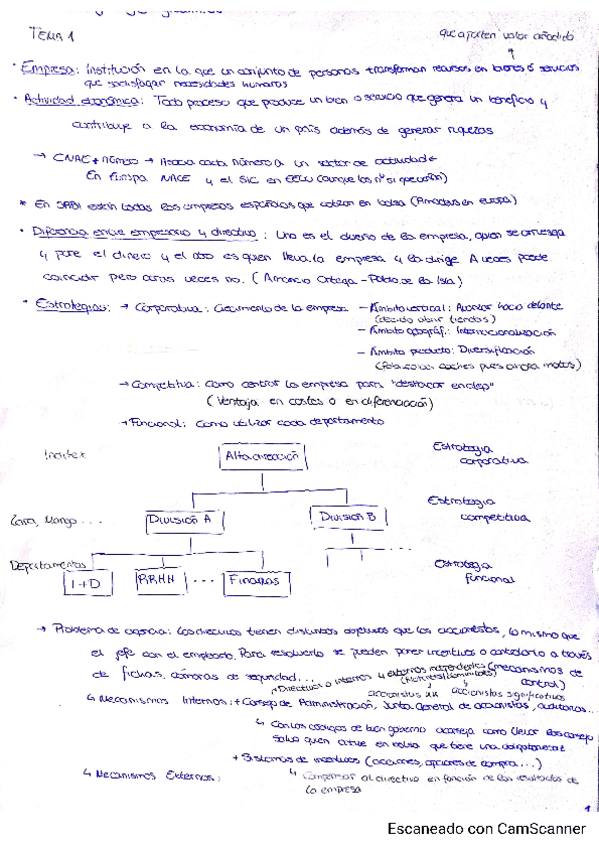 TEMA 1
que aporten valor añadido
· Empresa: Institución en la que un conjunto de personas transforman recursos en bienes o servicios
que satisfagan necesidades humanas
· Actividad económica: Todo proceso que produce un bien o servicio que genera un beneficio y
contribuye a la economía de un país además de generar riquezas
→ CNAE + número → Asocia cada número a un sector de actividad
En Europa NACE y el SIC en EEUU (aunque los nº si que varían)
* En SABI están todas las empresas españolas que cotizan en bolsa (Amadeus en europa)
· Diferencia entre empresario y directivo: Uno es el dueño de la empresa, quien se arriesga
y pone el dinero y el otro es quien lleva la empresa y la dirige. A veces puede
coincidir pero otras veces no. (Amancio Ortega - Pablo de la Isla)
· Estrategias: → Corporativa: Crecimiento de la empresa
- Ámbito vertical: Avanzar hacia delante
(decido abrir tiendas)
- Ámbito geográf.: Internacionalización
- Ámbito producto: Diversificación
coches pues ahora motos)
→ Competitiva: Como centrar la empresa para "destacar en algo"
(Ventaja en costes o en diferenciación)
→ Funcional: Como utilizar cada departamento
Inditex
Alta dirección
Estrategia
corporativa
Zara, Mango ...
División A
División B
Estrategia
competitiva
Departamentos
I+D
RRHH
...
Finanzas
Estrategia
funcional
→ Problema de agencia: Los directivos tienen distintos objetivos que los accionistas, lo mismo que
el jefe con el empleado. Para resolverlo se pueden poner incentivos o controlarlo a través
de fichas, cámaras de seguridad... (mecanismos de
control)
Directivos o internos y externos independientes
accionistas
accionistas significativos
↳ Mecanismos Internos: + Consejo de Administración, Junta General de accionistas, auditorías...
↳ Con los códigos de buen gobierno aconseja como llevar los consejos
salvo quien cotice en bolsa que tiene una obligatoriedad
+ Sistemas de incentivos (acciones, opciones de compra...)
↳ Mecanismos Externos:
↳ Compensar al directivo en función de los resultados de
la empresa
1
Escaneado con CamScanner